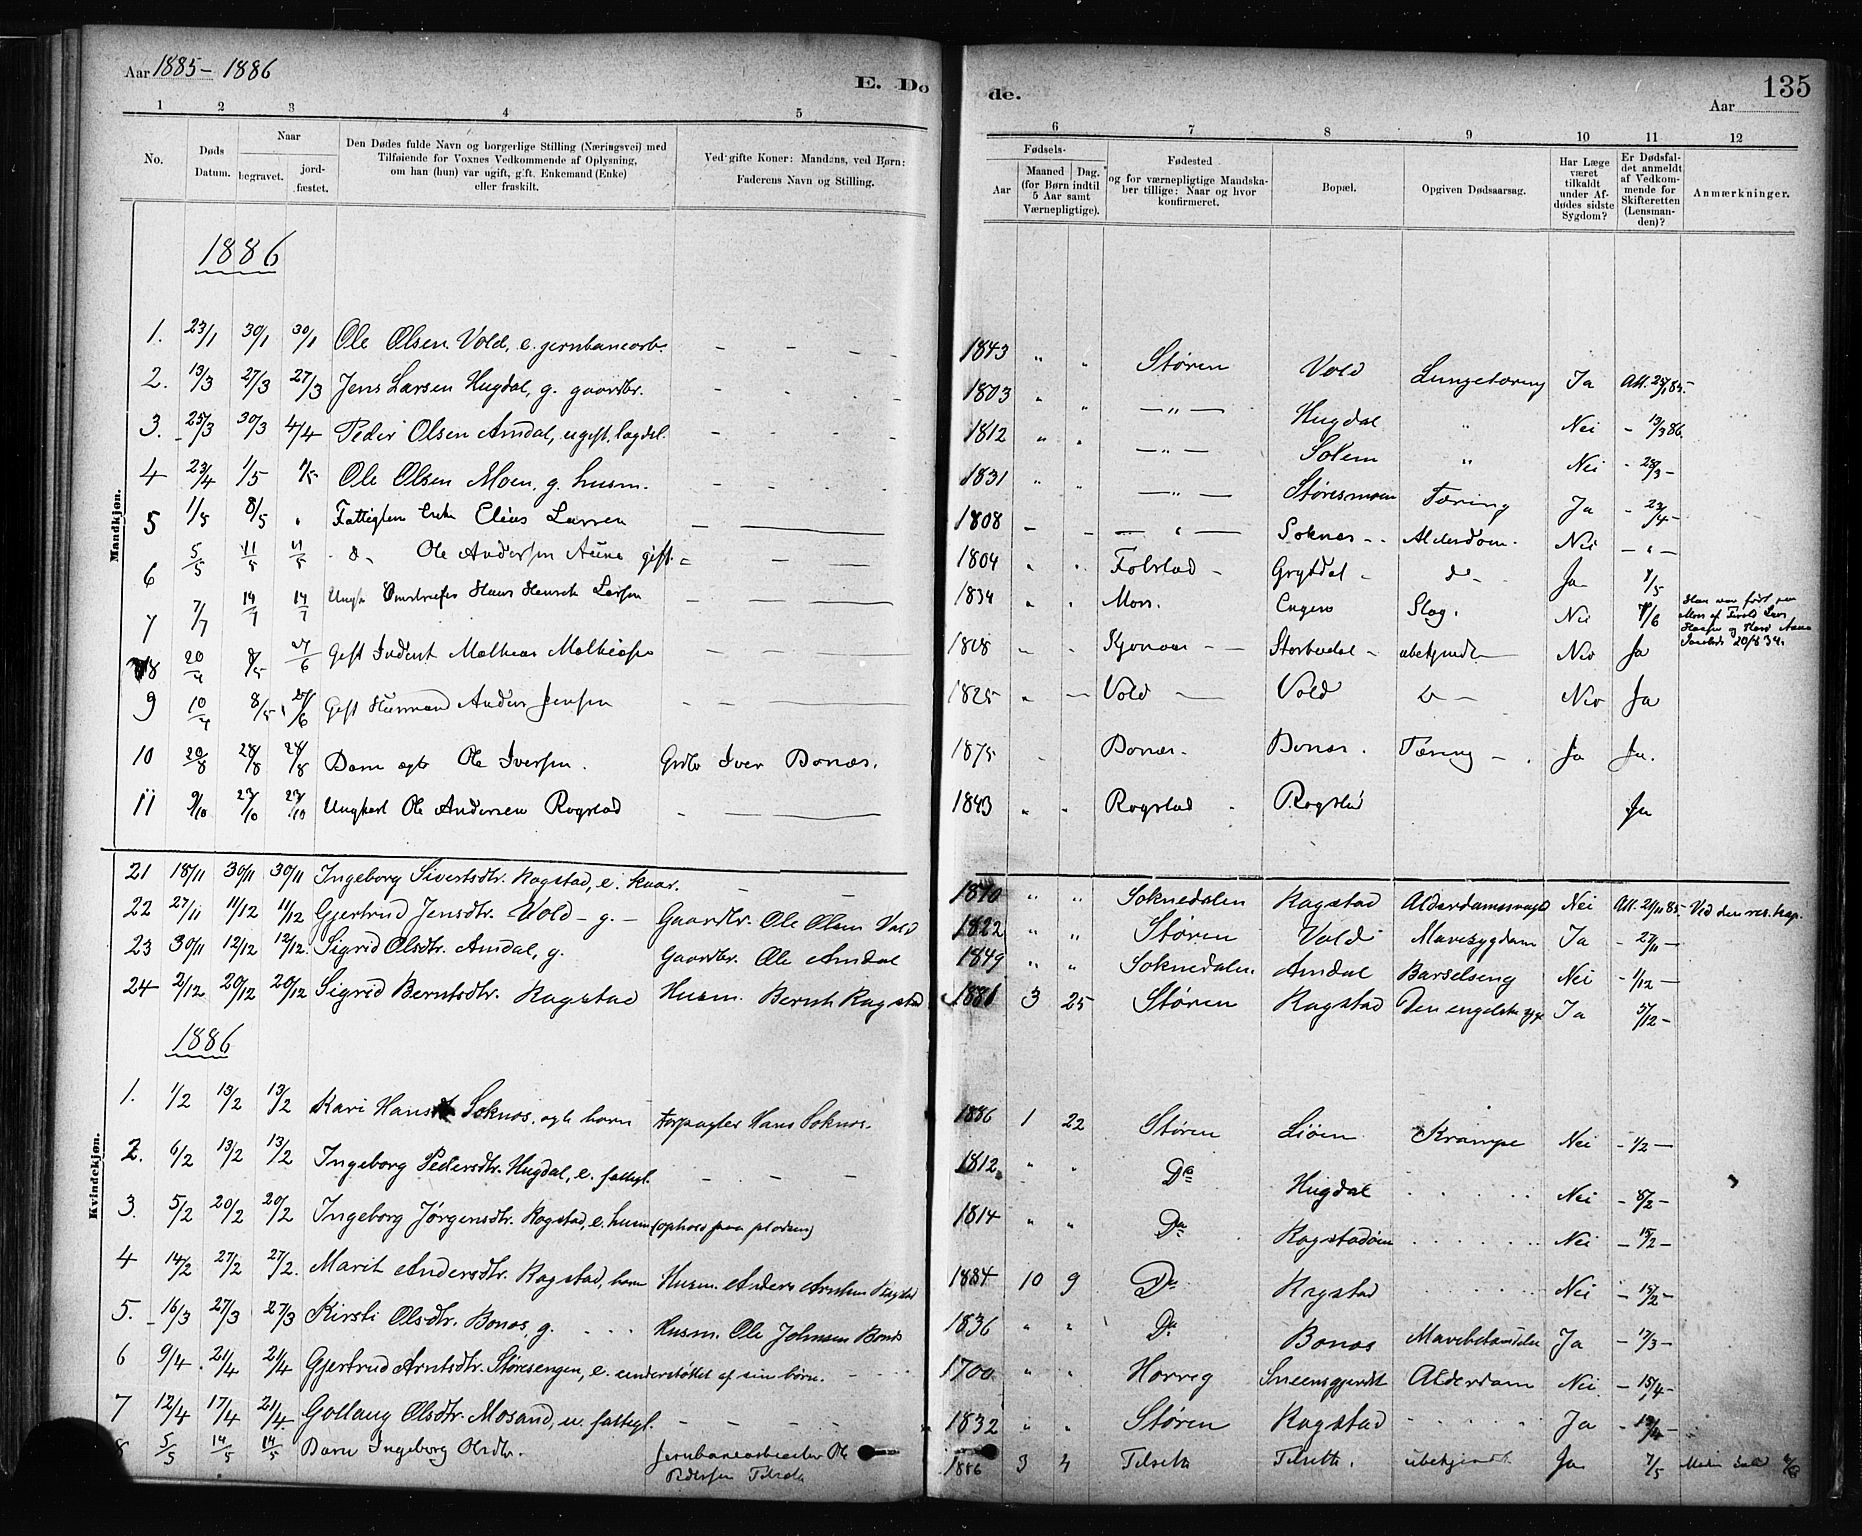 Aar 1885 - 1886
E. Do de.
135
Aar
1 2 3 4 5 6 7 8 9 10 11 12
No.
Døds Datum.
Naar
begravet.
jord-fæstet.
Den Dødes fulde Navn og borgerlige Stilling (Næringsvei) med
Tilføiende for Voxnes Vedkommende af Oplysning,
om han (hun) var ugift, gift, Enkemand (Enke)
eller fraskilt.
Ved gifte Koner: Mandens, ved Børn:
Faderens Navn og Stilling.
Fødsels-
Aar
Maaned Dag.
(for Børn indtil
5 Aar samt
Værnepligtige).
Fødested
og for værnepligtige Mandska-
ber tillige: Naar og hvor
konfirmeret.
Bopæl.
Opgiven Dødsaarsag.
Har Læge
været
tilkaldt
under Af-
dødes sidste
Sygdom?
Er Dødsfal-
det anmeldt
af Vedkom-
mende for
Skifteretten
(Lensman-
den)?
Anmærkninger.
Mandkjøn.
1886
1. 23/1 30/1 30/1 Ole Olsen Vold, e. jernbanearb. - - - - 1843 " " Støren Vold Lungetæring Ja
2. 13/3 27/3 27/3 Jens Larsen Hugdal, g. gaardbr. - - 1803 " " —"— Hugdal " Nei - 13/3 86
3. 25/3 30/3 4/4 Peder Olsen Amdal, ugift, lægdsl. - - - - 1812 " " —"— Solem " Nei
4 23/4 1/5 1/5 Ole Olsen Moen, g. husm. - - - - 1831 " " —"— Støresmoen Tæring Ja - 23/4 -
5 1/5 8/5 " Fattiglem Enkem Elias Larsen - — 1808 - - —"— Soknes - Alderdom. Nei - " -
6 5/5 11/5 11/5 - D - Ole Andersen Aune gift. - — — 1804 " " Folstad - Grytdal - d - Ja 7/5
7 7/7 14/7 14/7 Ungk. Hans Henrik Larsen - — — 1834 " " Moss. Engen Slag. Nei
8 20/4 8/5 27/6 Gift Inderst Mathias Mathiasen - — — 1808 - - Storbudal - ubekjendt - Nei Ja
9 10/4 8/5 27/6 Gift Husmand Anders Jensen - - — 1825 " — Vold — Vold D - Nei Ja
10 20/8 28/8 28/8 Barn ægte Ole Iversen. Grdbr Iver Bonæs. 1875 " Bonæs. Bonæs. Tæring - Ja Ja.
11 9/10 23/10 23/10 Ungkarl Ole Andersen Rogstad - — — 1843 " " Rogstad - Rogstad Ja
21 18/11 30/11 30/11 Ingeborg Sivertsdtr. Rogstad, e. kaar. - - 1810 " " Soknedalen Rogstad Alderdomssvagh. Nei Att. 21/11 85 - Ved den res. kap.
22 27/11 11/12 11/12 Gjertrud Jensdtr. Vold - g. - Gaardbr. Ole Olsen Vold 1822 " " Støren Vold Mavesygdom Ja - 27/11 -
23 30/11 12/12 12/12 Sigrid Olsdtr. Amdal, g. Gaardbr. Ole Amdal 1849 " " Soknedalen Amdal Barselseng Nei - 1/12 -
24 2/12 20/12 20/12 Sigrid Berntsdtr. Rogstad Husm. Bernt Rogstad 1881 3 25 Støren Rogstad Den engelske syge Ja 5/12 -
Kvindekjøn.
1886
1. 1/2 13/2 13/2 Kari Hansdtr Soknes, ægte barn Forpagter Hans Soknes. 1886 1 22 Støren Liøen Krampe Nei - 1/2 -
2. 6/2 13/2 13/2 Ingeborg Pedersdtr. Hugdal, e. fattigl. - - - 1812 " " Do Hugdal Nei - 8/2 -
3. 5/2 20/2 20/2 Ingeborg Jørgensdtr. Rogstad, e. husm (ophold paa pladsen) 1814 " " Do Rogstadøen Nei - 15/2 -
4 14/2 27/2 27/2. Marit Andersdtr. Rogstad, barn Husm. Anders Arntsen Rogstad 1884 10 9 Do Rogstad Nei - 15/2 -
5. 16/3 27/3 27/3 Kirsti Olsdtr. Bonæs, g. Husm. Ole Johnsen Bonæs 1836 " " Do Bonæs Ja - 17/3 -
6 9/4 21/4 21/4 Gjertrud Arntsdtr. Støresengen, e. understøttet af sin børn. 1700 " " Horrig Alderdom Nei - 15/4 -
7 12/4 17/4 21/4. Gollaug Olsdtr. Mosand, u. fattigl. - - - 1832 " " Støren Rogstad Ja - 13/4 -
8 5/5 14/5 14/5 Barn Ingeborg Olsdtr. Jernbanearbeider Ole Pedersen Tilseth 1886 3 4 Tilseth Tilseth. ubekjendt Ja 7/5